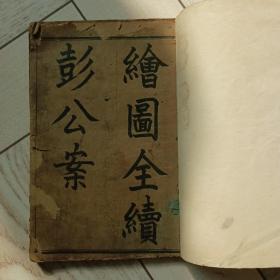 繪圖全續
彭公案